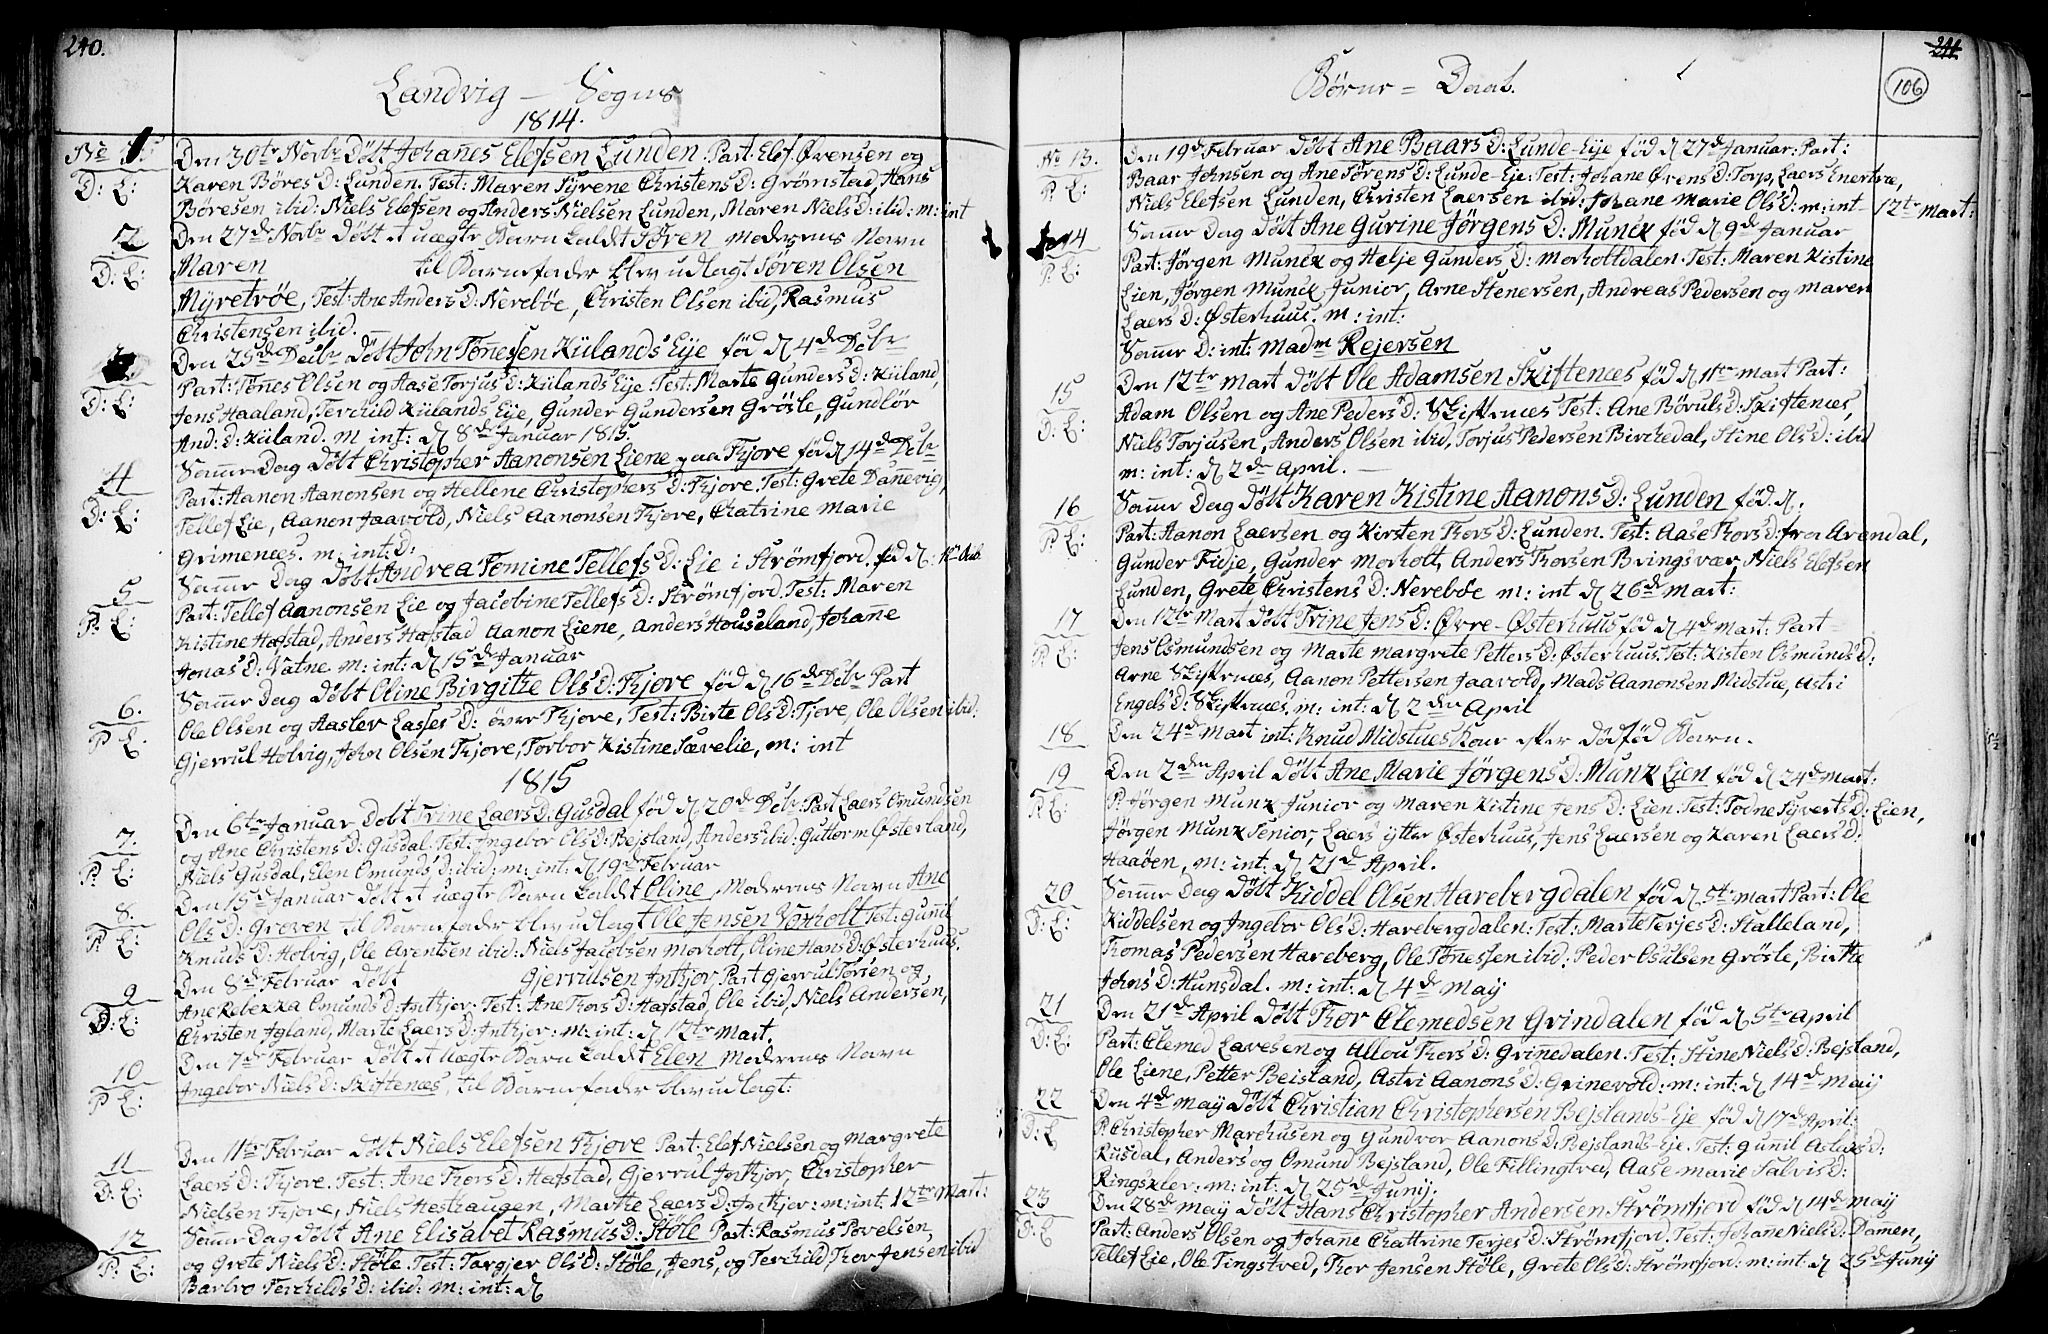 240.
Landvig - Sogns
1814.
No 1
Den 30te Novbr Døbt Johañes Elefsen Lunden. Part: Elef Örensen og
D: E: Karen Böres D: Lunden. Test: Maren Syrene Christens D: Grömstad, Hans
Böresen ibid: Niels Elefsen og Anders Nielsen Lunden, Maren Niels D: ibid: m: int
12 Den 27de Novbr Døbt et uægte Barn kaldt Sören Moderens Navn
D: E: Maren til Barnefader blev udlagt Sören Olsen
Myretröe, Test: Ane Anders D: Nereböe, Christen Olsen ibid, Rasmus
Christensen ibid.
Den 25de Decbr Døbt John Töñesen Kiilands Eje föd d 4de Debr
D: E: Part: Töñes Olsen og Aase Torjus D: Kiilands Eje. Test: Marte Gunders D: Kiiland,
Jens Haaland, Terchild Kiilands Eje, Gunder Gundersen Grösle, Gundlör
And: D: Kiiland. m int: d 8de Januar 1815.
4 Samme Dag Døbt Christopher Aanonsen Liene paa Fjore, föd d 14de Debr
D: E: Part: Aanon Aanonsen og Hellene Christophers D: Fjore. Test: Grete Dañevig,
Tellef Eie, Aanon Jaavold, Niels Aanonsen Fjore, Chatrine Marie
Grimenæs. m: int: D:
5 Samme Dag Døbt Andrea Tomine Tellefs D: Eie i Strömfjord. föd d:
P: E: Part: Tellef Aanonsen Eie og Jacobine Tellefs D: Strömfjord. Test: Maren
Kistine Hafstad, Anders Hafstad Aanon Liene, Anders Houseland, Johañe
Jonas D: Vatne m: int: d 15de Januar
6. Samme Dag Døbt Oline Birgithe Ols D: Fjore föd d 16de Debr Part
P E. Ole Olsen og Aasler Lasses D: över Fjore, Test: Birte Ols D: Fjore, Ole Olsen ibid:
Gjerrul Holvig, John Olsen Fjore, Torbor Kistine Sævelie, m: int
1815
Den 6te Januar Døbt Trine Laers D: Gusdal föd d 20de Debr Part Laers Omundsen
7. og Ane Christens D: Gusdal. Test: Ingebor Ols D: Bejsland, Anders ibid: Guttorm Österland,
P: E: Niels Gusdal, Elen Omunds D: ibid: m: int: d 19de Februar
Den 15de Januar Døbt et uægte Barn kaldt Oline, Moderens Navn Ane
8. Ols D: Groven til Barnefader blev udlagt Ole Jensen Test: Gunil
P: E: Knuds D: Holvig, Ole Arentsen ibid: Niels Jacobsen Morholt, Oline Hans D: Österhuus.
Den 8de Februar Døbt Gjerrulsen Intkjor, Part Gjerrul Torsen og
9 Ane Rebekka Omunds D: Intkjor. Test: Ane Thors D: Hafstad, Ole ibid, Niels Andersen,
D: E: Christen Igland, Marte Laers D: Intkjor: m: int: d 12te Mart.
Den 7de Februar Døbt et uægte Barn kaldt Elen Moderens Navn
10 P E: Ingebor Niels D: Skiftenæs, til Barnefader blev udlagt:
Den 11te Februar Døbt Niels Elefsen Fjore Part: Elef Nielsen og Margrete
11 Laers D: Fjore. Test: Ane Thors D: Hafstad, Gjerrul Intkjor, Christopher
D: E: Nielsen Fjore, Niels Hesthaugen, Marthe Laers D: Intkjor: m: int: 12te Mart:
12 Samme Dag Døbt Ane Elisabet Rasmus D: Stöle Part: Rasmus Povelsen,
P: E: og Grete Niels D: Stöle. Test: Targjer Ols D: Stöle, Jens, og Terchild, Thor Jensen ibid
Barbro Terchilds D: ibid: m: int: d
241
106
Börne = Daab.
No 13. Den 19de Februar Døbt Ane Baars D: Lunde-Eje föd d 27de Januar: Part:
P: E: Baar Johnsen og Ane Sörens D: Lunde-Eje: Test: Johane Örens D: Torp, Laers Enertræ,
Niels Elefsen Lunden, Christen Laersen ibid: Johane Marie Ols D: m: int 12te Mart:
14 Samme Dag Døbt Ane Gurine Jörgens D: Munck föd d 9de Januar
P: E: Part: Jörgen Munck og Helje Gunders D: Morholtdalen. Test: Maren Kistine
Lien, Jörgen Munck Junior, Arne Stenersen, Andreas Pedersen og Maren
Laers D: Österhuus. m: int:
Samme D: int: Madm Rejersen
15 Den 12te Mart Døbt Ole Adamsen Skiftenæs föd d 11te Mart Part:
D: E: Adam Olsen og Ane Peders D: Skiftenæs Test: Ane Böruls D: Skiftenæs,
Niels Torjusen, Anders Olsen ibid, Torjus Pedersen Birchedal, Stine Ols D: ibid
m: int: d 2de April.
16 Samme Dag Døbt Karen Kistine Aanons D: Lunden föd d.
P: E: Part: Aanon Laersen og Kirsten Thors D: Lunden. Test: Aase Thors D: fra Arendal,
Gunder Fidje, Gunder Morholt, Anders Thorsen Bringsvær, Niels Elefsen
Lunden, Grete Christens D: Nereböe m: int d 26de Mart:
17 Den 12te Mart Døbt Trine Jens D: Övre-Österhuus föd d 4de Mart: Part
P: E: Jens Osmundsen og Marte Margrete Petters D: Österhuus. Test: Kisten Osmunds D:
Arne Skiftenæs, Aanon Pettersen Jaavold, Mads Aanonsen Midstue, Astri
Engels D: Skiftenæs. m: int: d 2den April
18 Den 24de Mart int: Knud Midstues Kone efter dödföd Barn.
19 Den 2den April Døbt Ane Marie Jörgens D: Munk Lien föd d 24de Mart:
P: E: P: Jörgen Munk Junior og Maren Kistine Jens D: Lien. Test: Todne Syverts D: Lien,
Jörgen Munk Senior, Laers ytter Österhuus, Jens Laersen og Karen Laers D:
Haaöen, m: int: d 21de April.
20 Samme Dag Døbt Kiddel Olsen Harebergdalen föd d 5te Mart Part: Ole
D: E: Kiddelsen og Ingebor Ols D: Harebergdalen: Test: Marte Terjes D: Stalleland,
Thomas Pedersen Hareberg, Ole Töñessen ibid: Peder Osulsen Grösle, Birthe
Johns D: Hunsdal. m: int: d 4de May
21 Den 21de April Døbt Thor Clemedsen Grindalen föd d 5te April
D: E: Part: Clemed Lavesen og Allou Thors D: Griñedalen. Test: Stine Niels D: Bejsland,
Ole Liene, Petter Beisland, Astri Aanons D: Grinevold: m: int: d 14de May
22 Den 4de May Døbt Christian Christophersen Bejslands-Eje föd d 17de April:
D: E P: Christopher Marchusen og Gundvor Aanons D: Bejslands-Eje. Test: Gunil Aslags D:
Riisdal, Anders og Omund Bejsland, Ole Fillingtræ, Aase Marie Salvis D:
Ringskler: m: int: d 25de Junij.
23 Den 28de May Døbt Hans Christopher Andersen Strömfjord föd d 14de May
D: E Part: Anders Olsen og Johane Chattrine Terjes D: Strömfjord. Test: Johane Niels D: Damen,
Tellef Eie, Ole Tingstved, Thor Jensen Stöle, Grete Ols D: Strömfjord: m: int: d 25de Junij